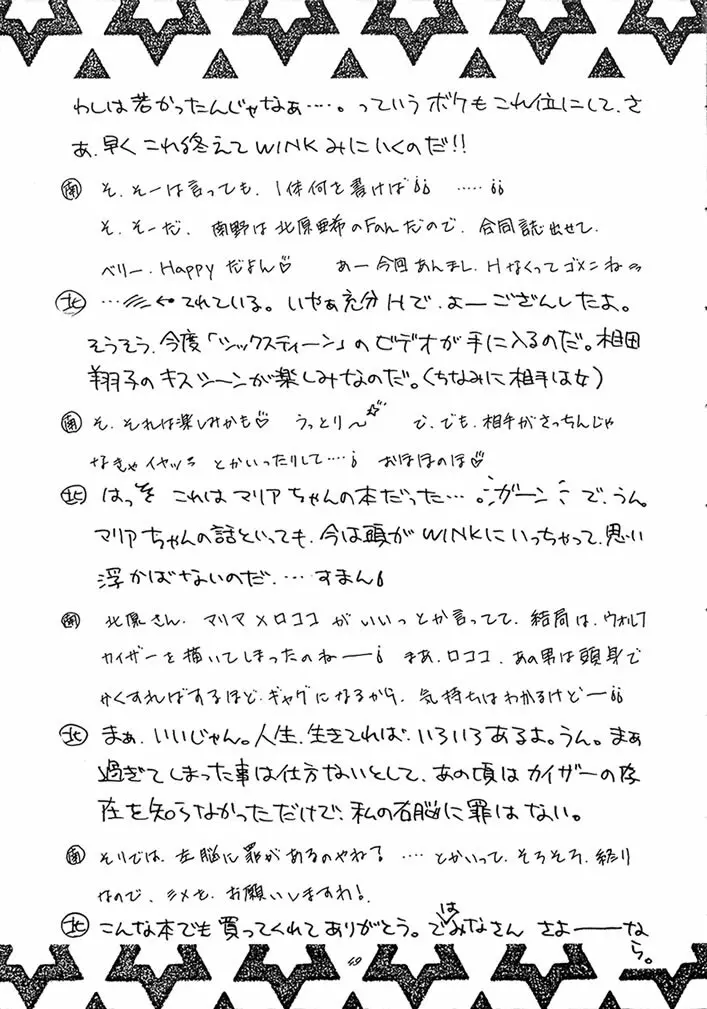 わしは若かったんじゃなぁ…‥。っていうボケもこれ位にして、さ
ぁ、早くこれ終えてWINKみにいくのだ!!
南 そ、そーは言っても、1体何を書けば¡¡ ‥‥¡¡
そ、そーだ、南野は北原亜希のFanだので、合同誌出せて、
ベリー・Happyだよん♡ あー今回あんまし、Hなくってゴメンね
北 …←てれている。いやぁ充分Hで、よーござんしたよ。
そうそう、今度「シックスティーン」のビデオが手に入るのだ。相田
翔子のキスシーンが楽しみなのだ。(ちなみに相手は女)
南 そ、それは楽しみかも♡ うっとり〜☆ で、でも、相手がさっちんじゃ
なきゃイヤッ とかいったりして…¡ おほほのほ♡
北 はっ これはマリアちゃんの本だった… ガーン で、うん。
マリアちゃんの話といっても、今は頭がWINKにいっちゃって、思い
浮かばないのだ、…すまん¡
南 北原さん、マリア×ロココがいいっとか言ってて、結局は、ウォルフ
カイザーを描いてしまったのね──¡ まあ、ロココ、あの男は頭身で
かくすればするほど、ギャグになるから、気持ちはわかるけど─¡¡
北 まぁ、いいじゃん。人生、生きてれば、いろいろあるよ。うん。まぁ
過ぎてしまった事は仕方ないとして、あの頃はカイザーの存
在を知らなかっただけで、私の右脳に罪はない。
南 そりでは、左脳に罪があるのやね? …‥とかいって、そろそろ、終り
なので、シメを、お願いしますわ!
北 こんな本でも買ってくれてありがとう。ではみなさん さよ───な
ら。
49